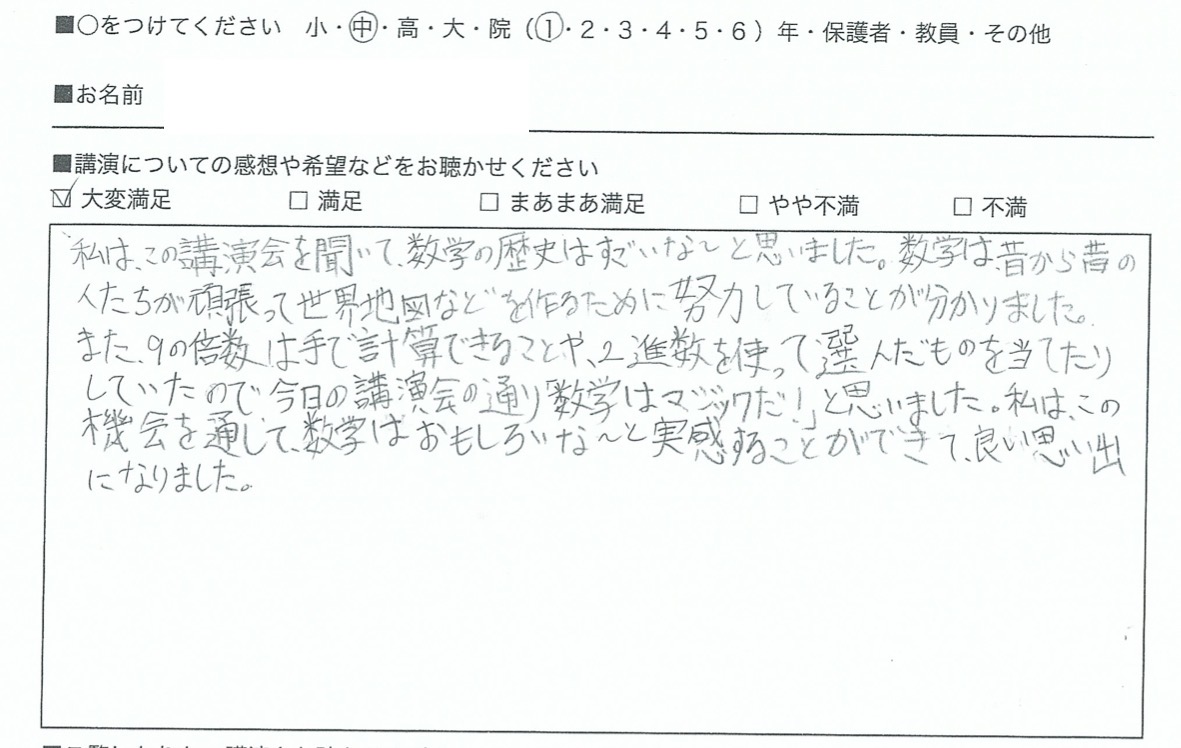 ■○をつけてください 小・中・高・大・院（1・2・3・4・5・6）年・保護者・教員・その他
■お名前
■講演についての感想や希望などをお聴かせください
☑ 大変満足 □ 満足 □ まあまあ満足 □ やや不満 □ 不満
私は、この講演会を聞いて、数学の歴史はすごいな～と思いました。数学は、昔から昔の
人たちが頑張って世界地図などを作るために努力していることが分かりました。
また、9の倍数は手で計算できることや、2進数を使って選んだものを当てたり
していたので今日の講演会の通り「数学はマジックだ！」と思いました。私は、この
機会を通して、数学はおもしろいな～と実感することができて、良い思い出
になりました。